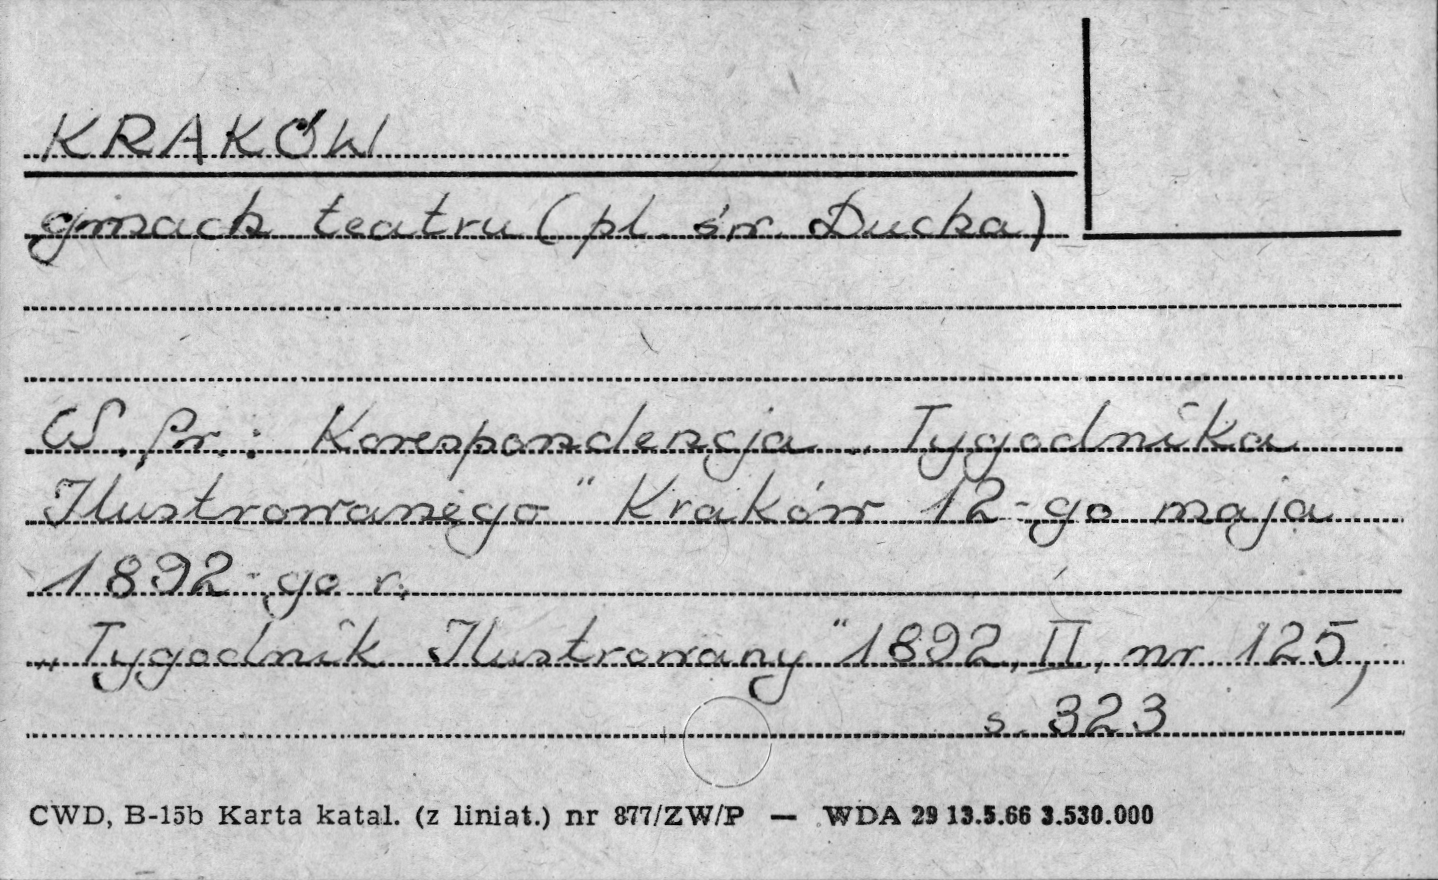 KRAKÓW
gmach teatru (pl. św. Ducha)
W. Pr.: Korespondencja „Tygodnika
Ilustrowanego" Kraków 12-go maja
1892-go r.
„Tygodnik Ilustrowany" 1892, II, nr. 125,
s. 323
CWD, B-15b Karta katal. (z liniat.) nr 877/ZW/P — WDA 29 13.5.66 3.530.000